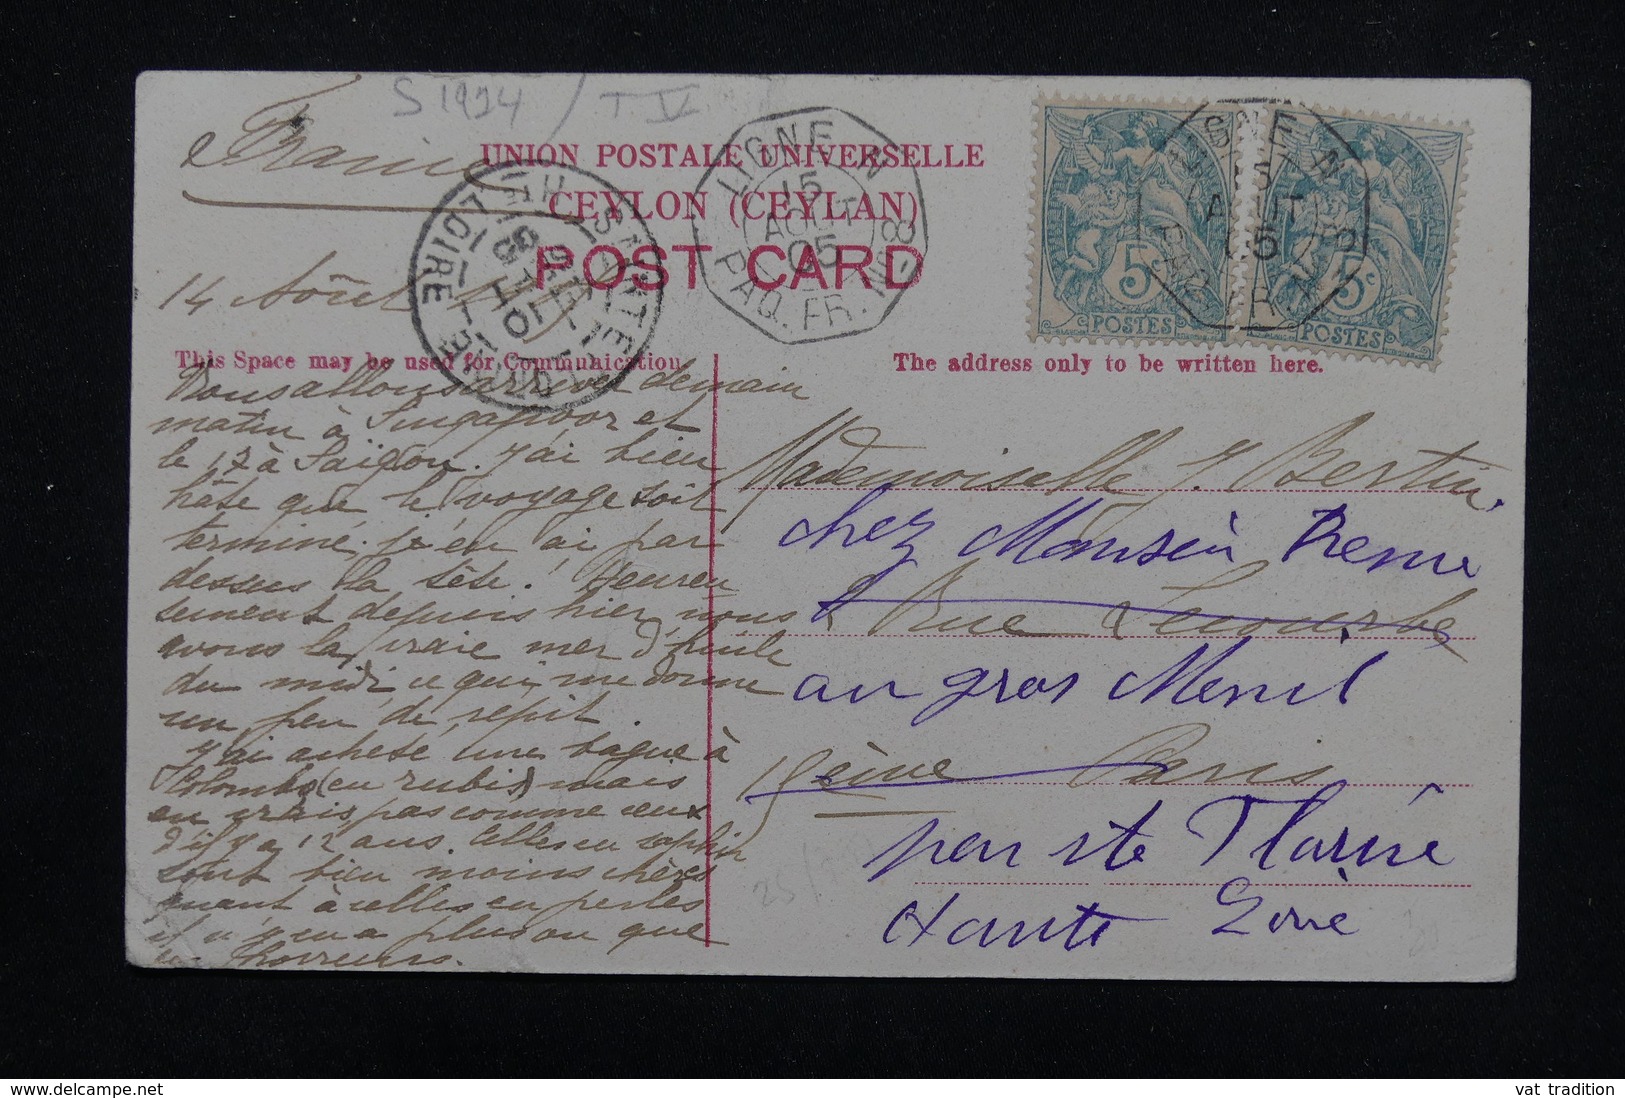 S 1924 / T. IV
France
UNION POSTALE UNIVERSELLE
CEYLON (CEYLAN)
POST CARD
LIGNE N
15
AOUT
05
PAQ. FR. N° 8
LIGNE N
15
AOUT
05
PAQ. FR. N° 8
5c
POSTES
5c
POSTES
STE FLORINE
HTE LOIRE
14 Août
This Space may be used for Communication.
The address only to be written here.
Nous allons arriver demain
matin à Singapoor et
le 17 à Saïgon. J'ai bien
hâte que le voyage soit
terminé. j'en ai par
dessus la tête! Heureu
sement depuis hier, nous
avons la vraie mer d'huile
du midi, ce qui me donne
un peu de répit.
J'ai acheté une bague à
Colombo (en rubis) mais
en vrais pas comme ceux
d'il y a 12 ans. Celles en saphir
sont bien moins chères
quant à celles en perles
il n'y en a plus ou que
des horreurs.
Mademoiselle J. Bertin.
chez Monsieur
Rue Lecourbe
au gros Menil
15ème Paris
par ste Florine
Haute Loire
vat tradition
www.delcampe.net